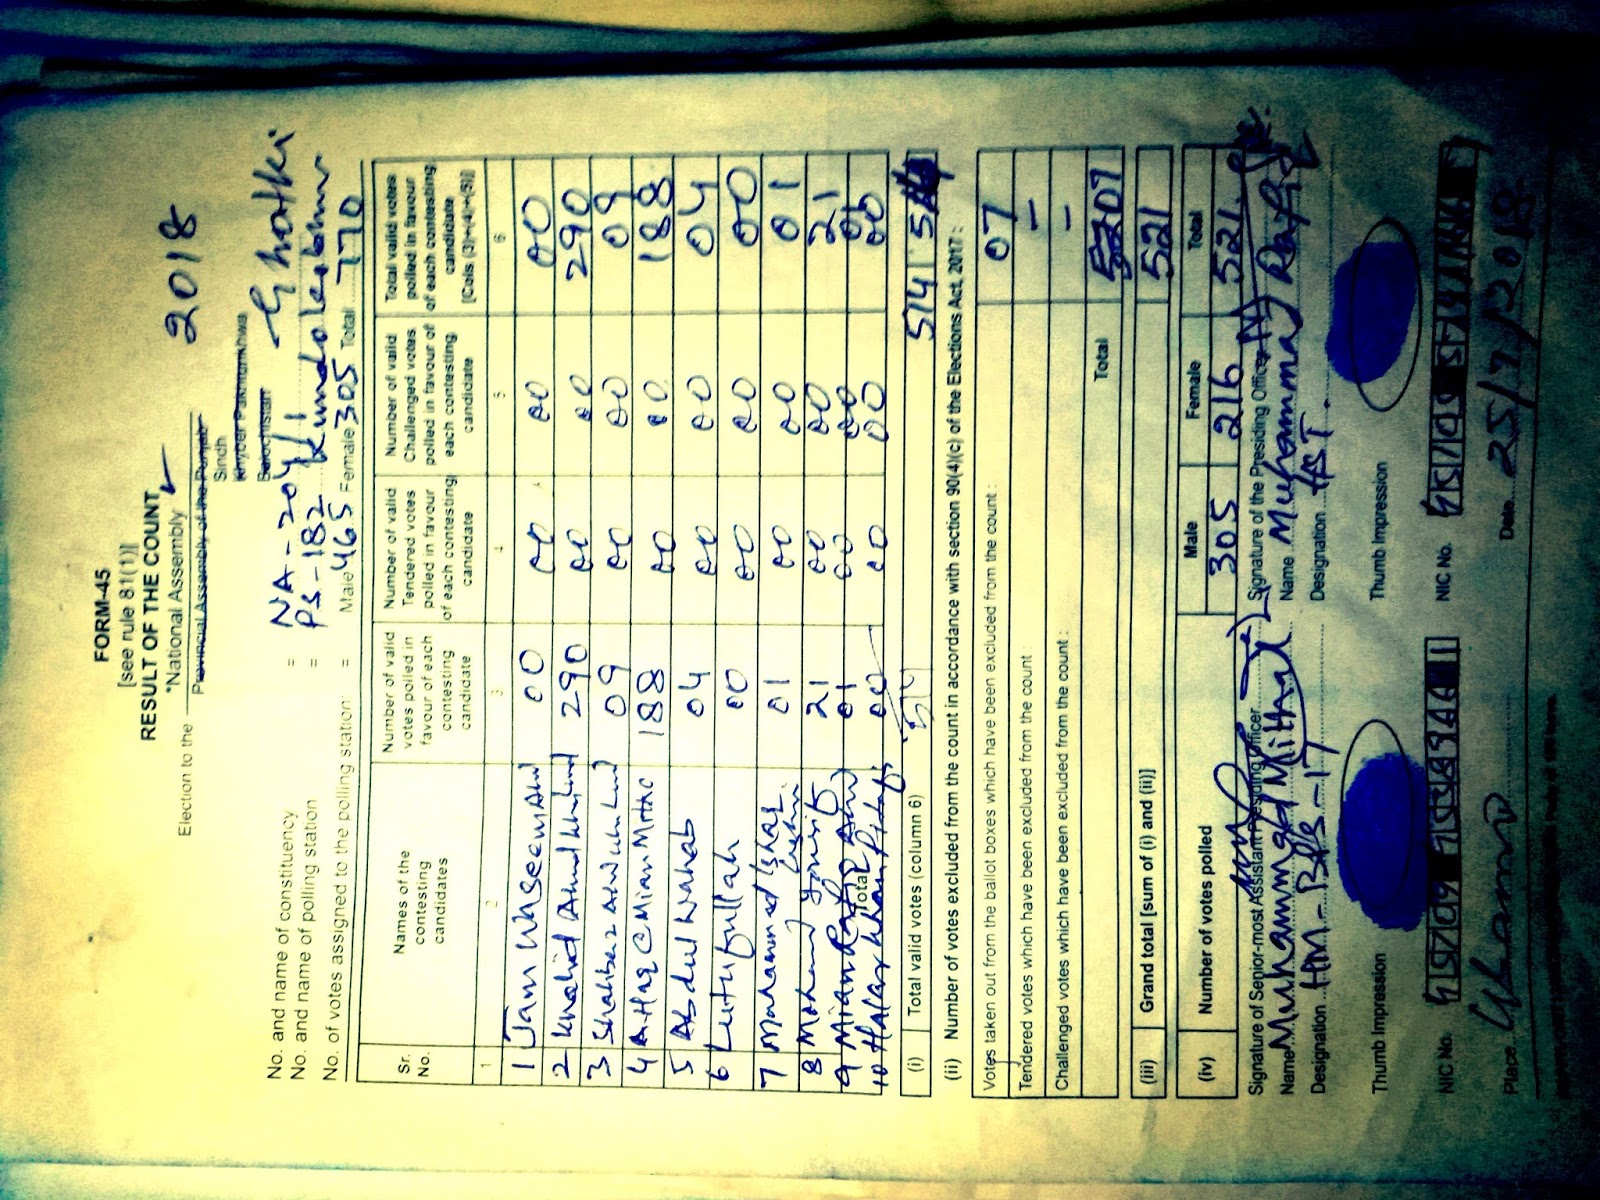 FORM-45
[see rule 81(1)]
RESULT OF THE COUNT
Election to the *National Assembly 2018
Provincial Assembly of the Punjab
Sindh
Khyber Pakhtunkhwa
Balochistan
No. and name of constituency = NA-204 Ghotki
No. and name of polling station = PS-182
No. of votes assigned to the polling station: = Male 465 Female 305 Total 770
Sr. No. Names of the contesting candidates Number of valid votes polled in favour of each contesting candidate Number of valid Tendered votes polled in favour of each contesting candidate Number of valid Challenged votes polled in favour of each contesting candidate Total valid votes polled in favour of each contesting candidate [Cols (3)+(4)+(5)]
1 2 3 4 5 6
1 Jam 00 00 00 00
2 Khalid Ahmed 290 00 00 290
3 09 00 00 09
4 A.Haq @ Mian Mitho 188 00 00 188
5 Abdul Wahab 04 00 00 04
6 Lutufullah 00 00 00 00
7 Muhammad 01 00 00 01
8 21 00 00 21
9 Mian 01 00 00 01
10 00 00 00 00
Total
(i) Total valid votes (column 6) 514 514
(ii) Number of votes excluded from the count in accordance with section 90(4)(c) of the Elections Act, 2017:
Votes taken out from the ballot boxes which have been excluded from the count: 07
Tendered votes which have been excluded from the count: -
Challenged votes which have been excluded from the count: -
Total 07
(iii) Grand total [sum of (i) and (ii)] 521
(iv) Number of votes polled Male Female Total
305 216 521
Signature of Senior-most Assistant Presiding Officer Signature of the Presiding Officer
Name Muhammad Mithal Name Muhammad Rafiq
Designation HM-BPS-17 Designation HST.
Thumb Impression Thumb Impression
NIC No. NIC No.
Place Date 25/7/2018